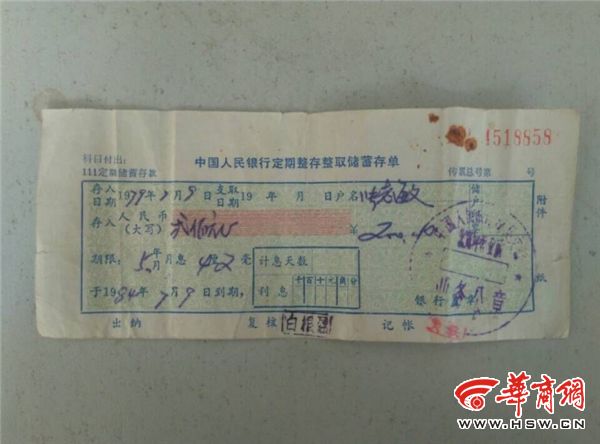 4518858
科目付出：
中国人民银行定期整存整取储蓄存单
111定期储蓄存款
传票总号第 号
存入日期1979年 月9日 支取日期19 年 月 日 户名 敏
附件
存入人民币(大写) ¥
期限：5年 月息4 2毫
计息天数
千百十元角分
利息
于1984年 月9日到期，
银行
业务 章
纸
出纳 复核 白根 记帐
华商网
WWW.HSW.CN